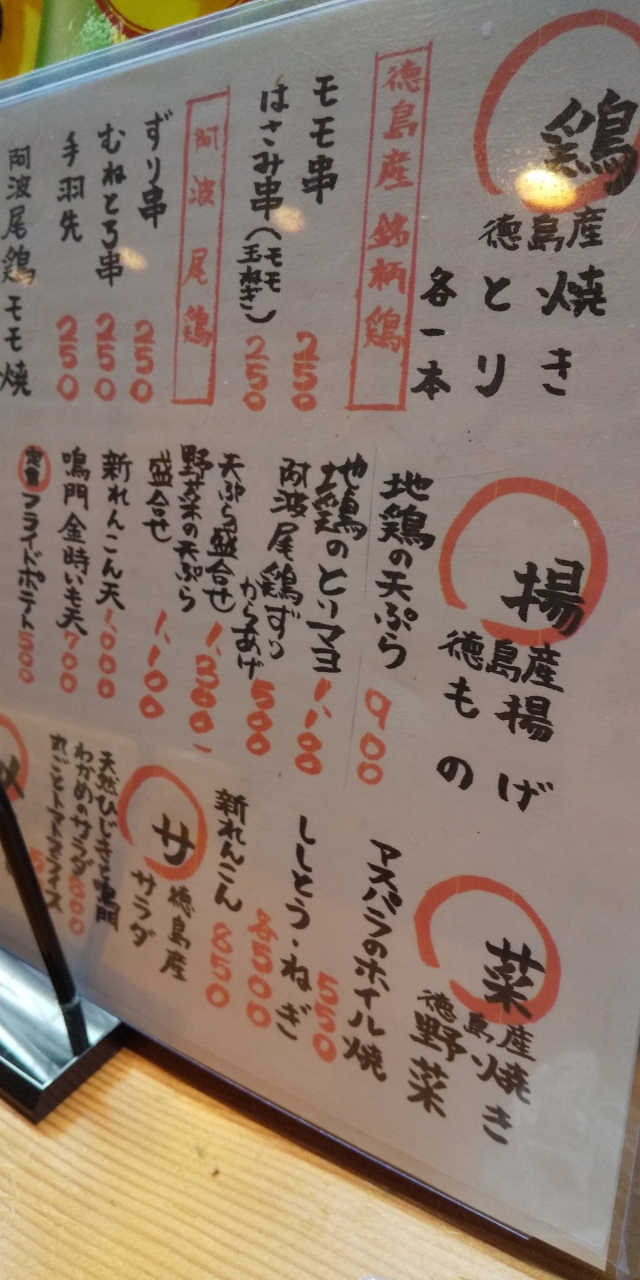 鶏
徳島産
焼き
とり
各一本
徳島産 銘柄鶏
モモ串 250
はさみ串(モモ 玉ねぎ) 250
阿波尾鶏
ずり串 250
むねとろ串 250
手羽先 250
阿波尾鶏モモ焼
揚
徳島産
揚げ
もの
地鶏の天ぷら 900
地鶏のとりマヨ 1,100
阿波尾鶏ずり
からあげ 500
天ぷら盛合せ 1,300
野菜の天ぷら
盛合せ 1,100
新れんこん天 1,000
鳴門金時いも天 700
定番 フライドポテト 500
菜
徳島産
焼き
野菜
アスパラのホイル焼 550
ししとう・ねぎ 各500
新れんこん 850
サ
徳島産
サラダ
天然ひじきと鳴門
わかめのサラダ 800
丸ごとトマトスライス